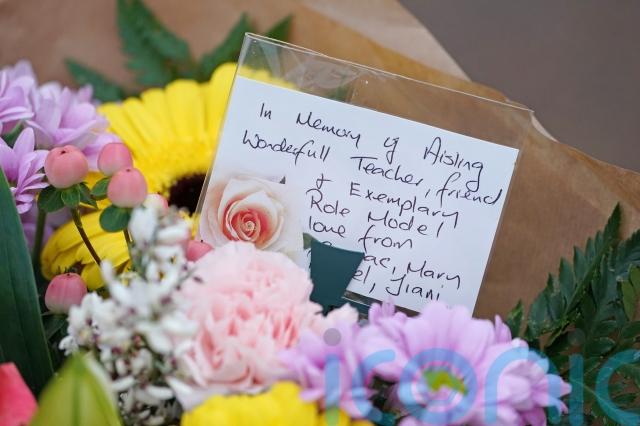 In Memory of Aisling
Wonderfull Teacher, friend
& Exemplary
Role Model
love from
Mary
Jiani
iconic